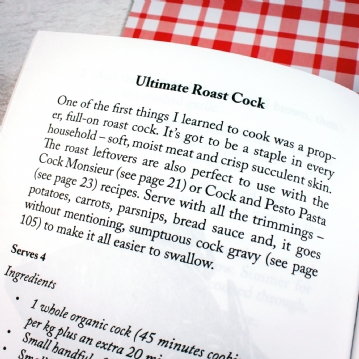 Ultimate Roast Cock
One of the first things I learned to cook was a prop-
er, full-on roast cock. It's got to be a staple in every
household – soft, moist meat and crisp succulent skin.
The roast leftovers are also perfect to use with the
Cock Monsieur (see page 21) or Cock and Pesto Pasta
(see page 23) recipes. Serve with all the trimmings –
potatoes, carrots, parsnips, bread sauce and, it goes
without mentioning, sumptuous cock gravy (see page
105) to make it all easier to swallow.
Serves 4
Ingredients
• 1 whole organic cock (45 minutes
per kg plus an extra 20
• Small handful
•